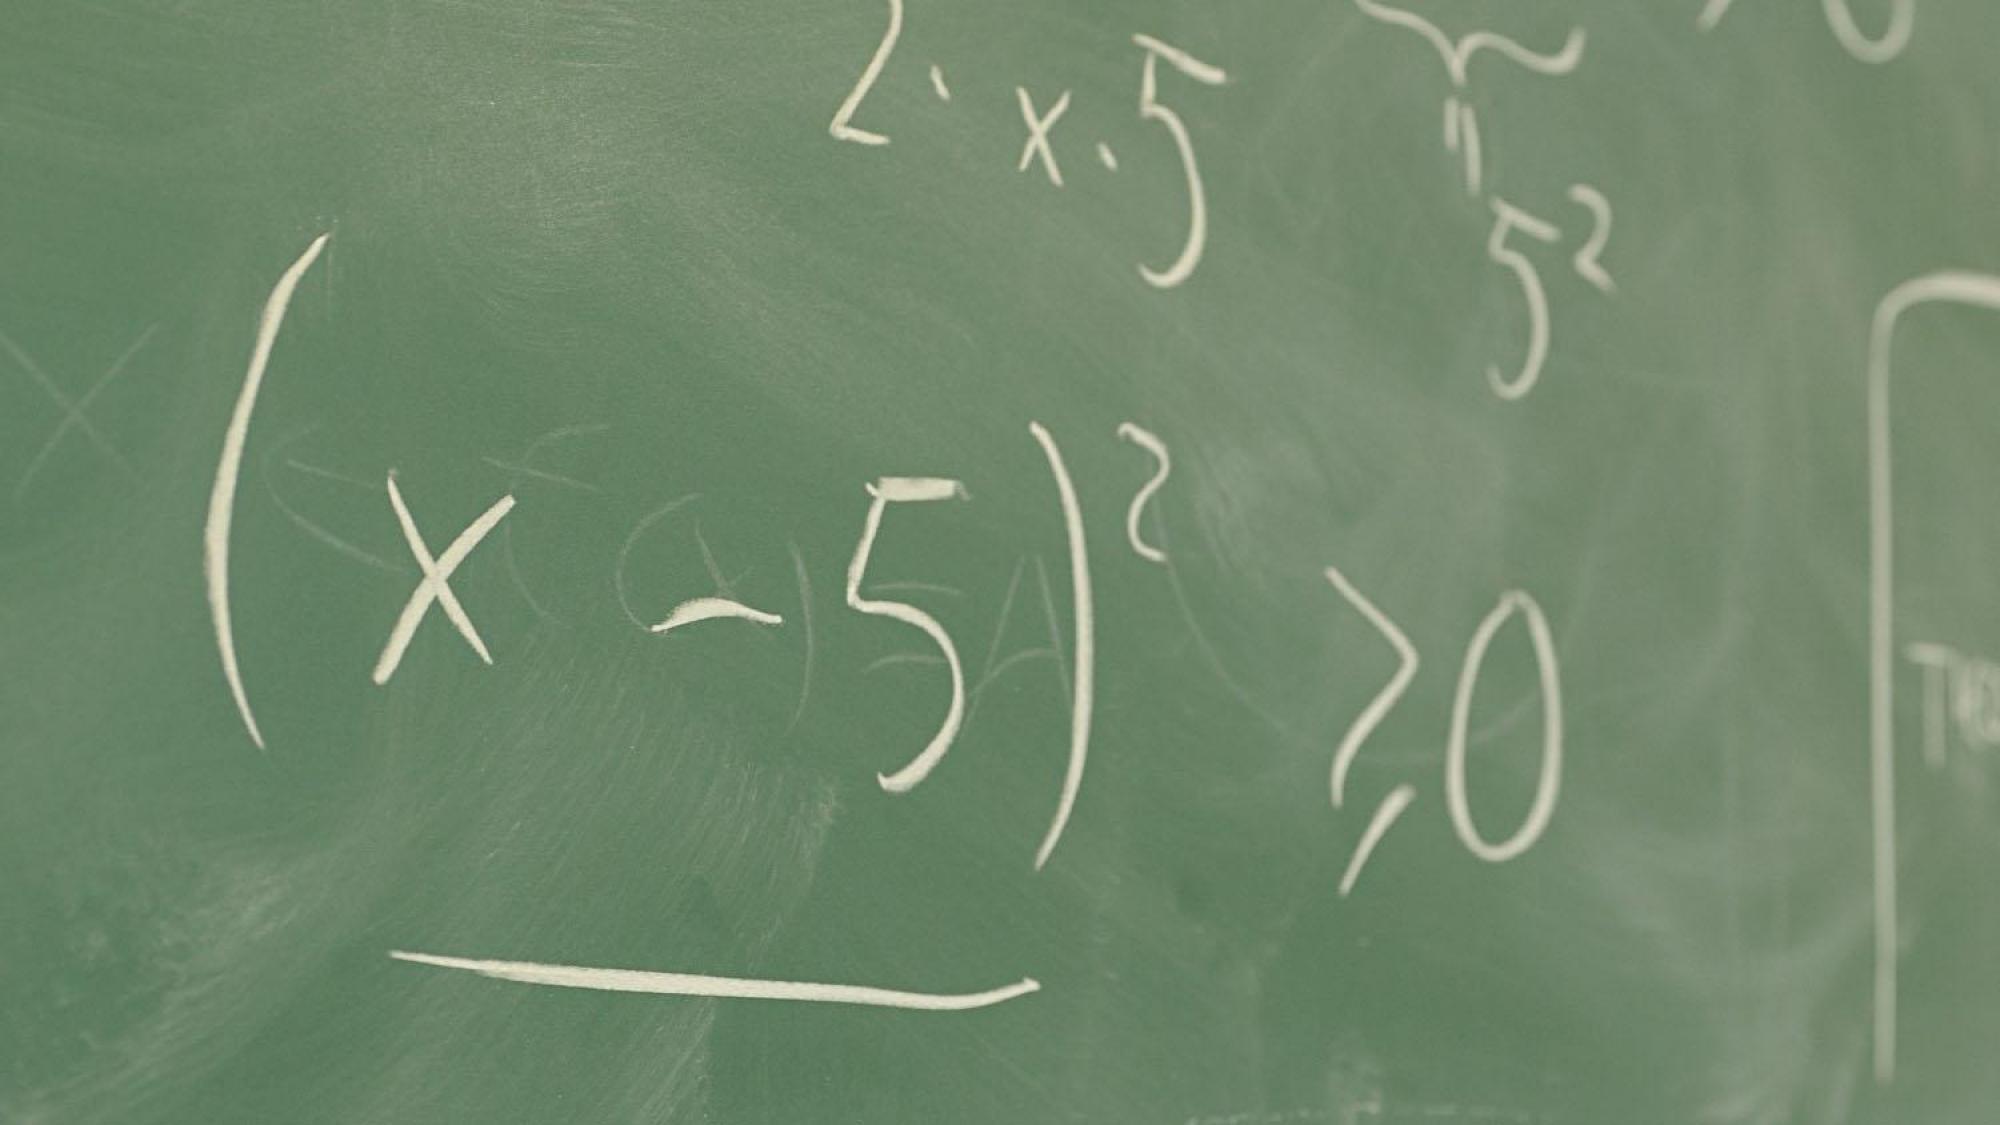 2 · x · 5
"
5²
(x - 5)² ⩾ 0